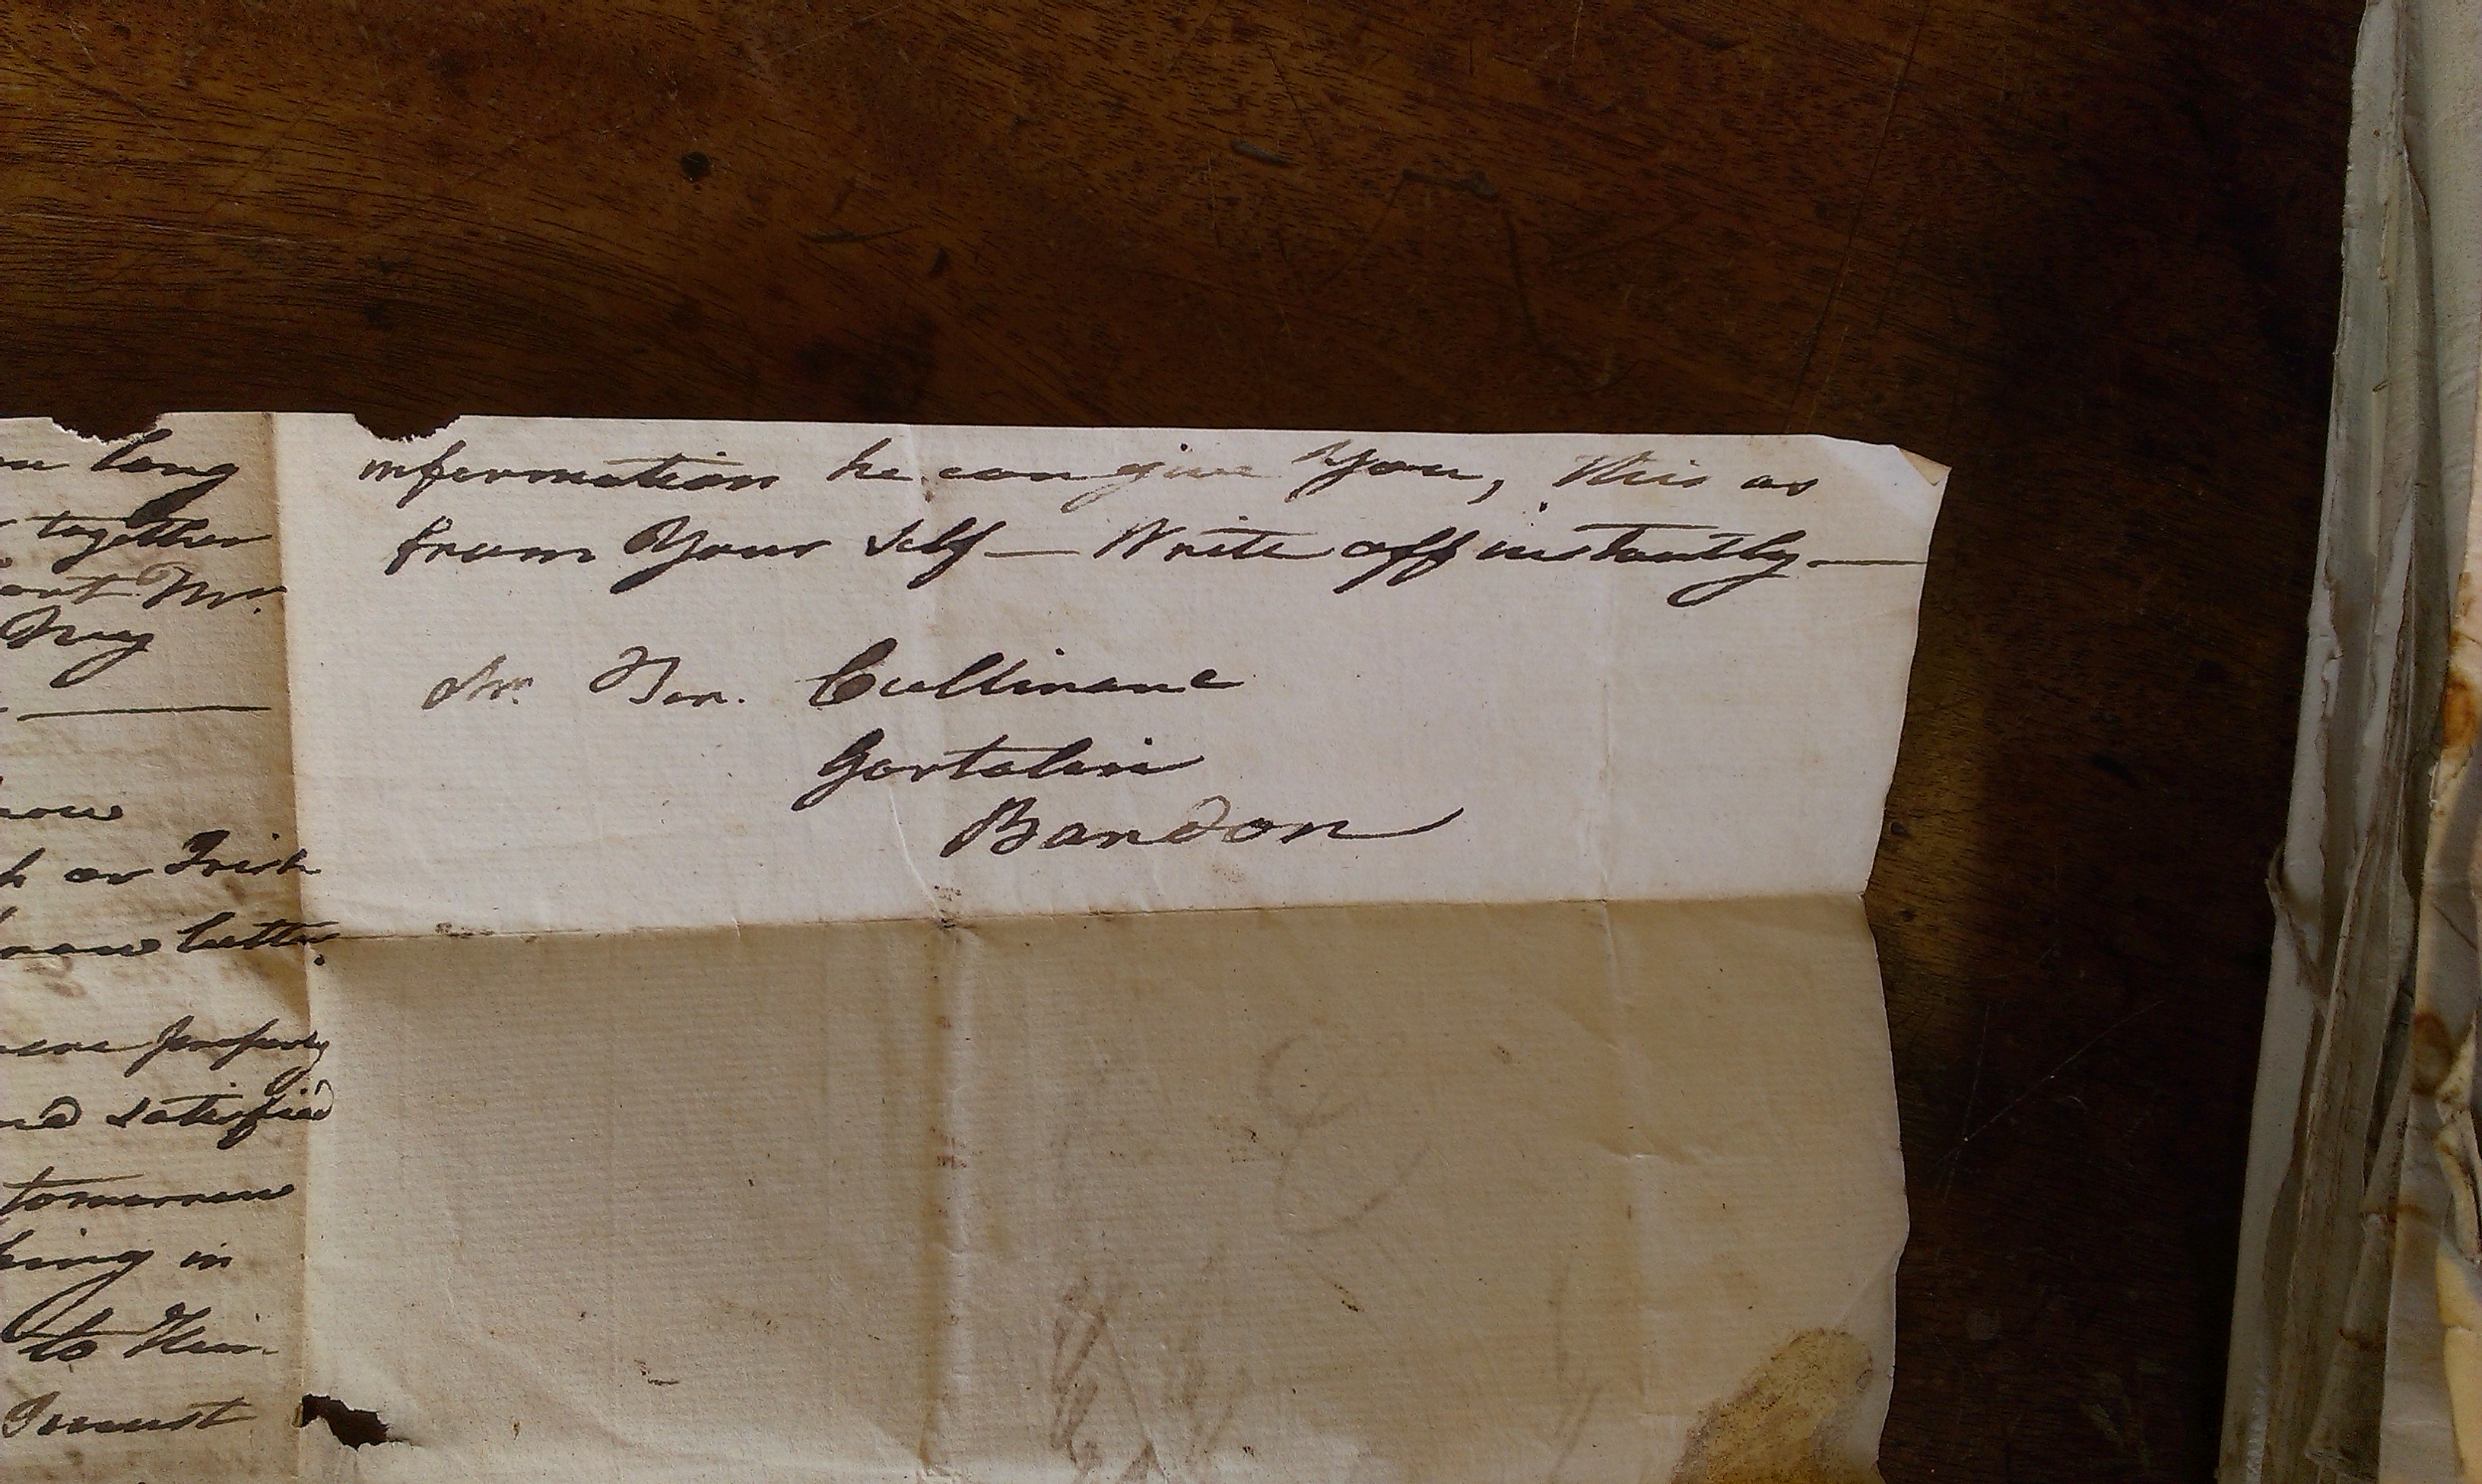 long
together
Mr.
now
or Irish
know better.
property
and satisfied
tomorrow
in
to Him
I must
information he can give You, this as
from Your Self — Write off instantly —
Mr. Ber. Cullinane
Gortalin
Bandon